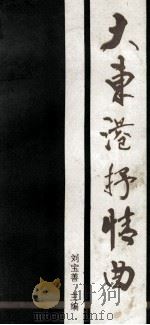 大東港抒情曲
刘宝善 主编